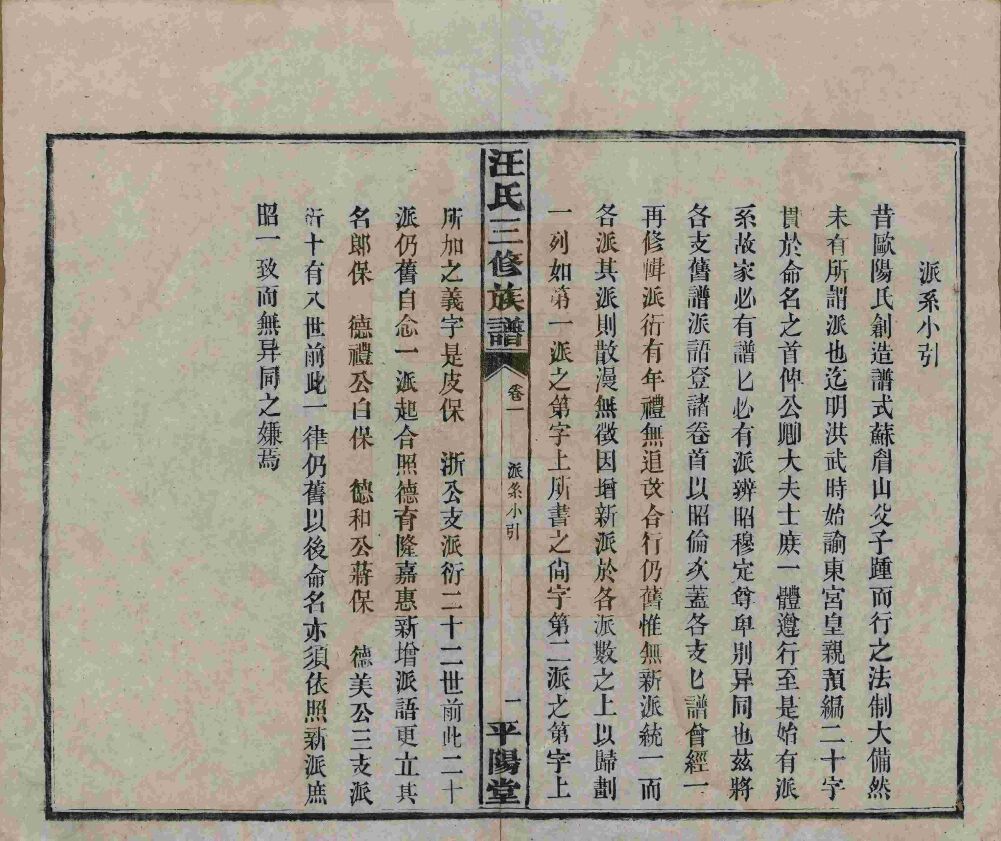 派系小引
昔歐陽氏創造譜式蘇眉山父子踵而行之法制大備然
未有所謂派也迄明洪武時始諭東宮皇親預編二十字
貫於命名之首俾公卿大夫士庶一體遵行至是始有派
系故家必有譜匕必有派辨昭穆定尊卑別异同也兹將
各支舊譜派語登諸卷首以昭倫次蓋各支匕譜曾經一
再修輯派衍有年禮無追改合行仍舊惟無新派統一而
各派其派則散漫無徵因增新派於各派數之上以歸劃
一列如第一派之第字上所書之尙字第二派之第字上
汪氏三修族譜
卷一
派系小引
一
平陽堂
所加之義字是皮保 浙公支派衍二十二世前此二十
派仍舊自念一派起合照德育隆嘉惠新增派語更立其
名郎保 德禮公白保 德和公蔣保 德美公三支派
衍十有八世前此一律仍舊以後命名亦須依照新派庶
昭一致而無异同之嫌焉